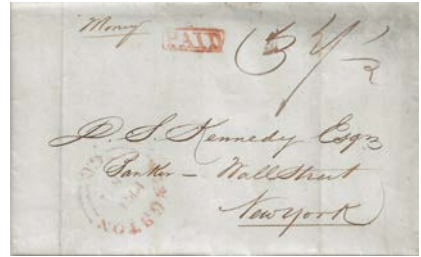 Money
PAID
D. S. Kennedy Esqr
Banker – Wall Street
New York